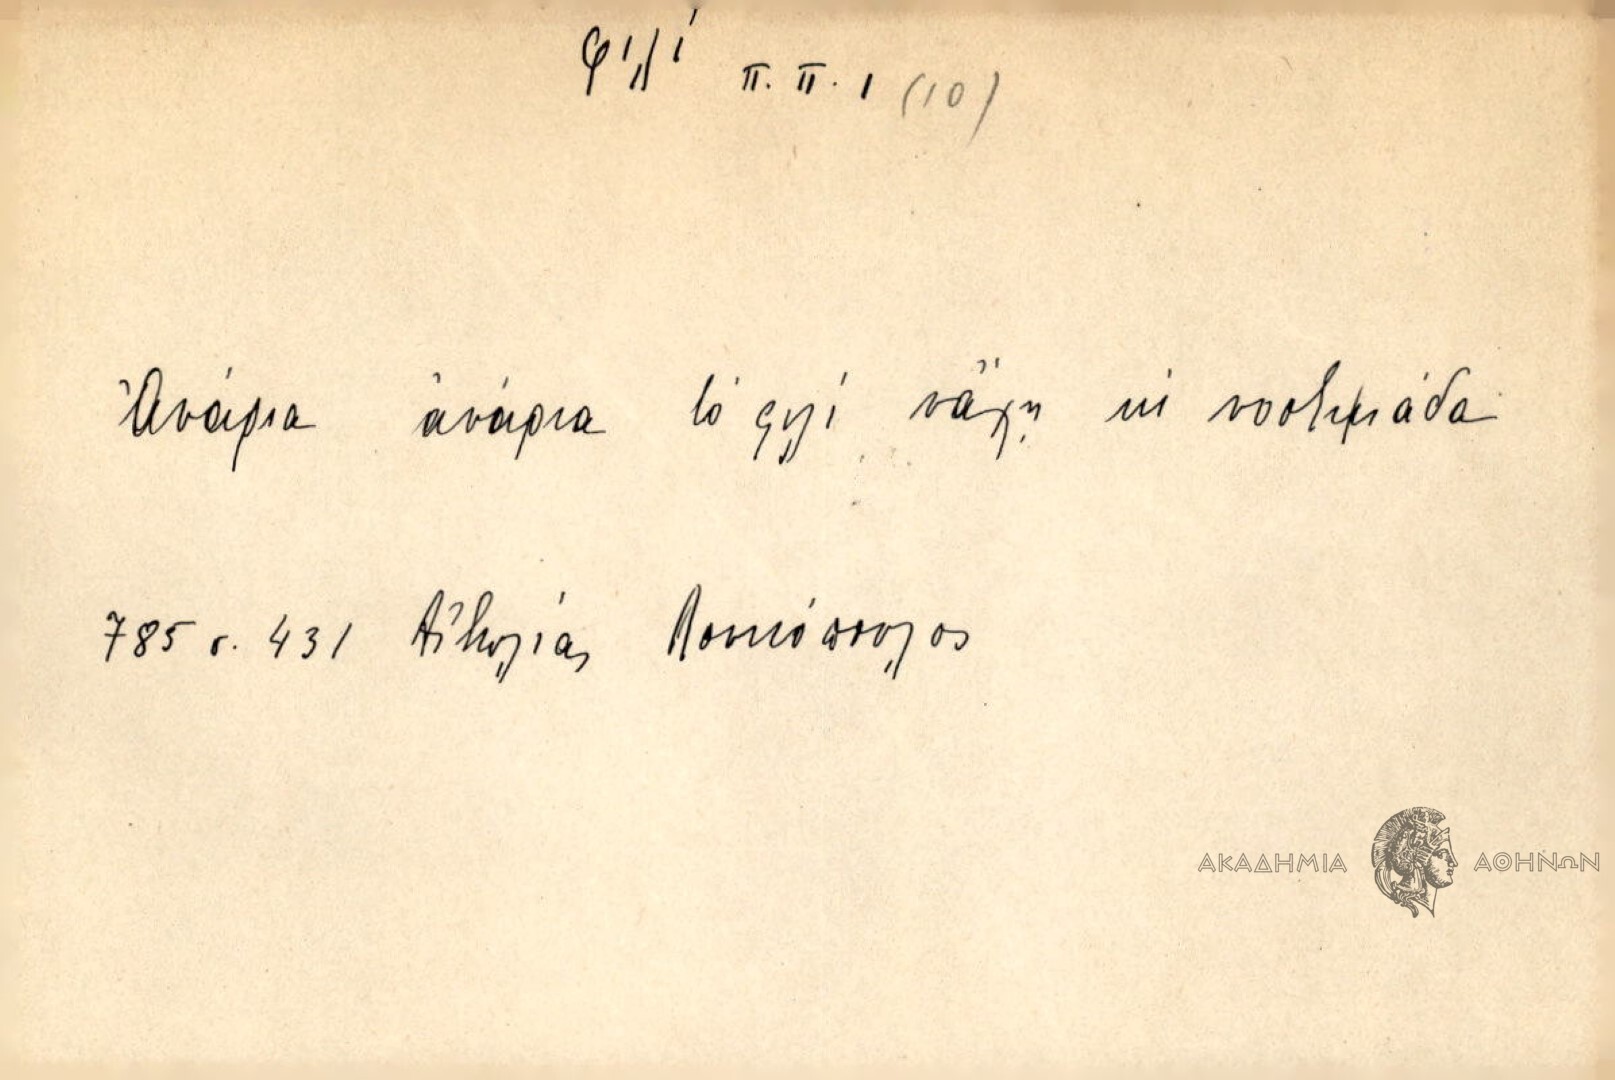 φιλί π. π. 1 (10)
Ἀνάρια ἀνάρια τό φιλί νἄχῃ κι νοστιμιάδα
785 σ. 431 Αἰτωλίας Λουκόπουλος
ΑΚΑΔΗΜΙΑ ΑΘΗΝΩΝ